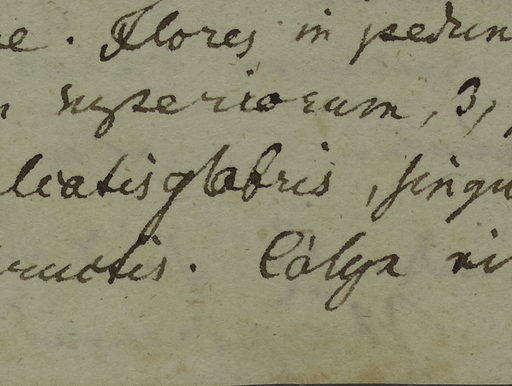 e. Flores in pedun
superiorum, 3,
licatis glabris, singu
ructis. Calyx vi